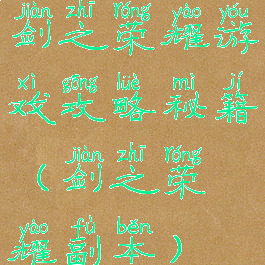 jiàn zhī róng yào yóu
剑之荣耀游
xì gōng lüè mì jí
戏攻略秘籍
jiàn zhī róng
(剑之荣
yào fù běn
耀副本)